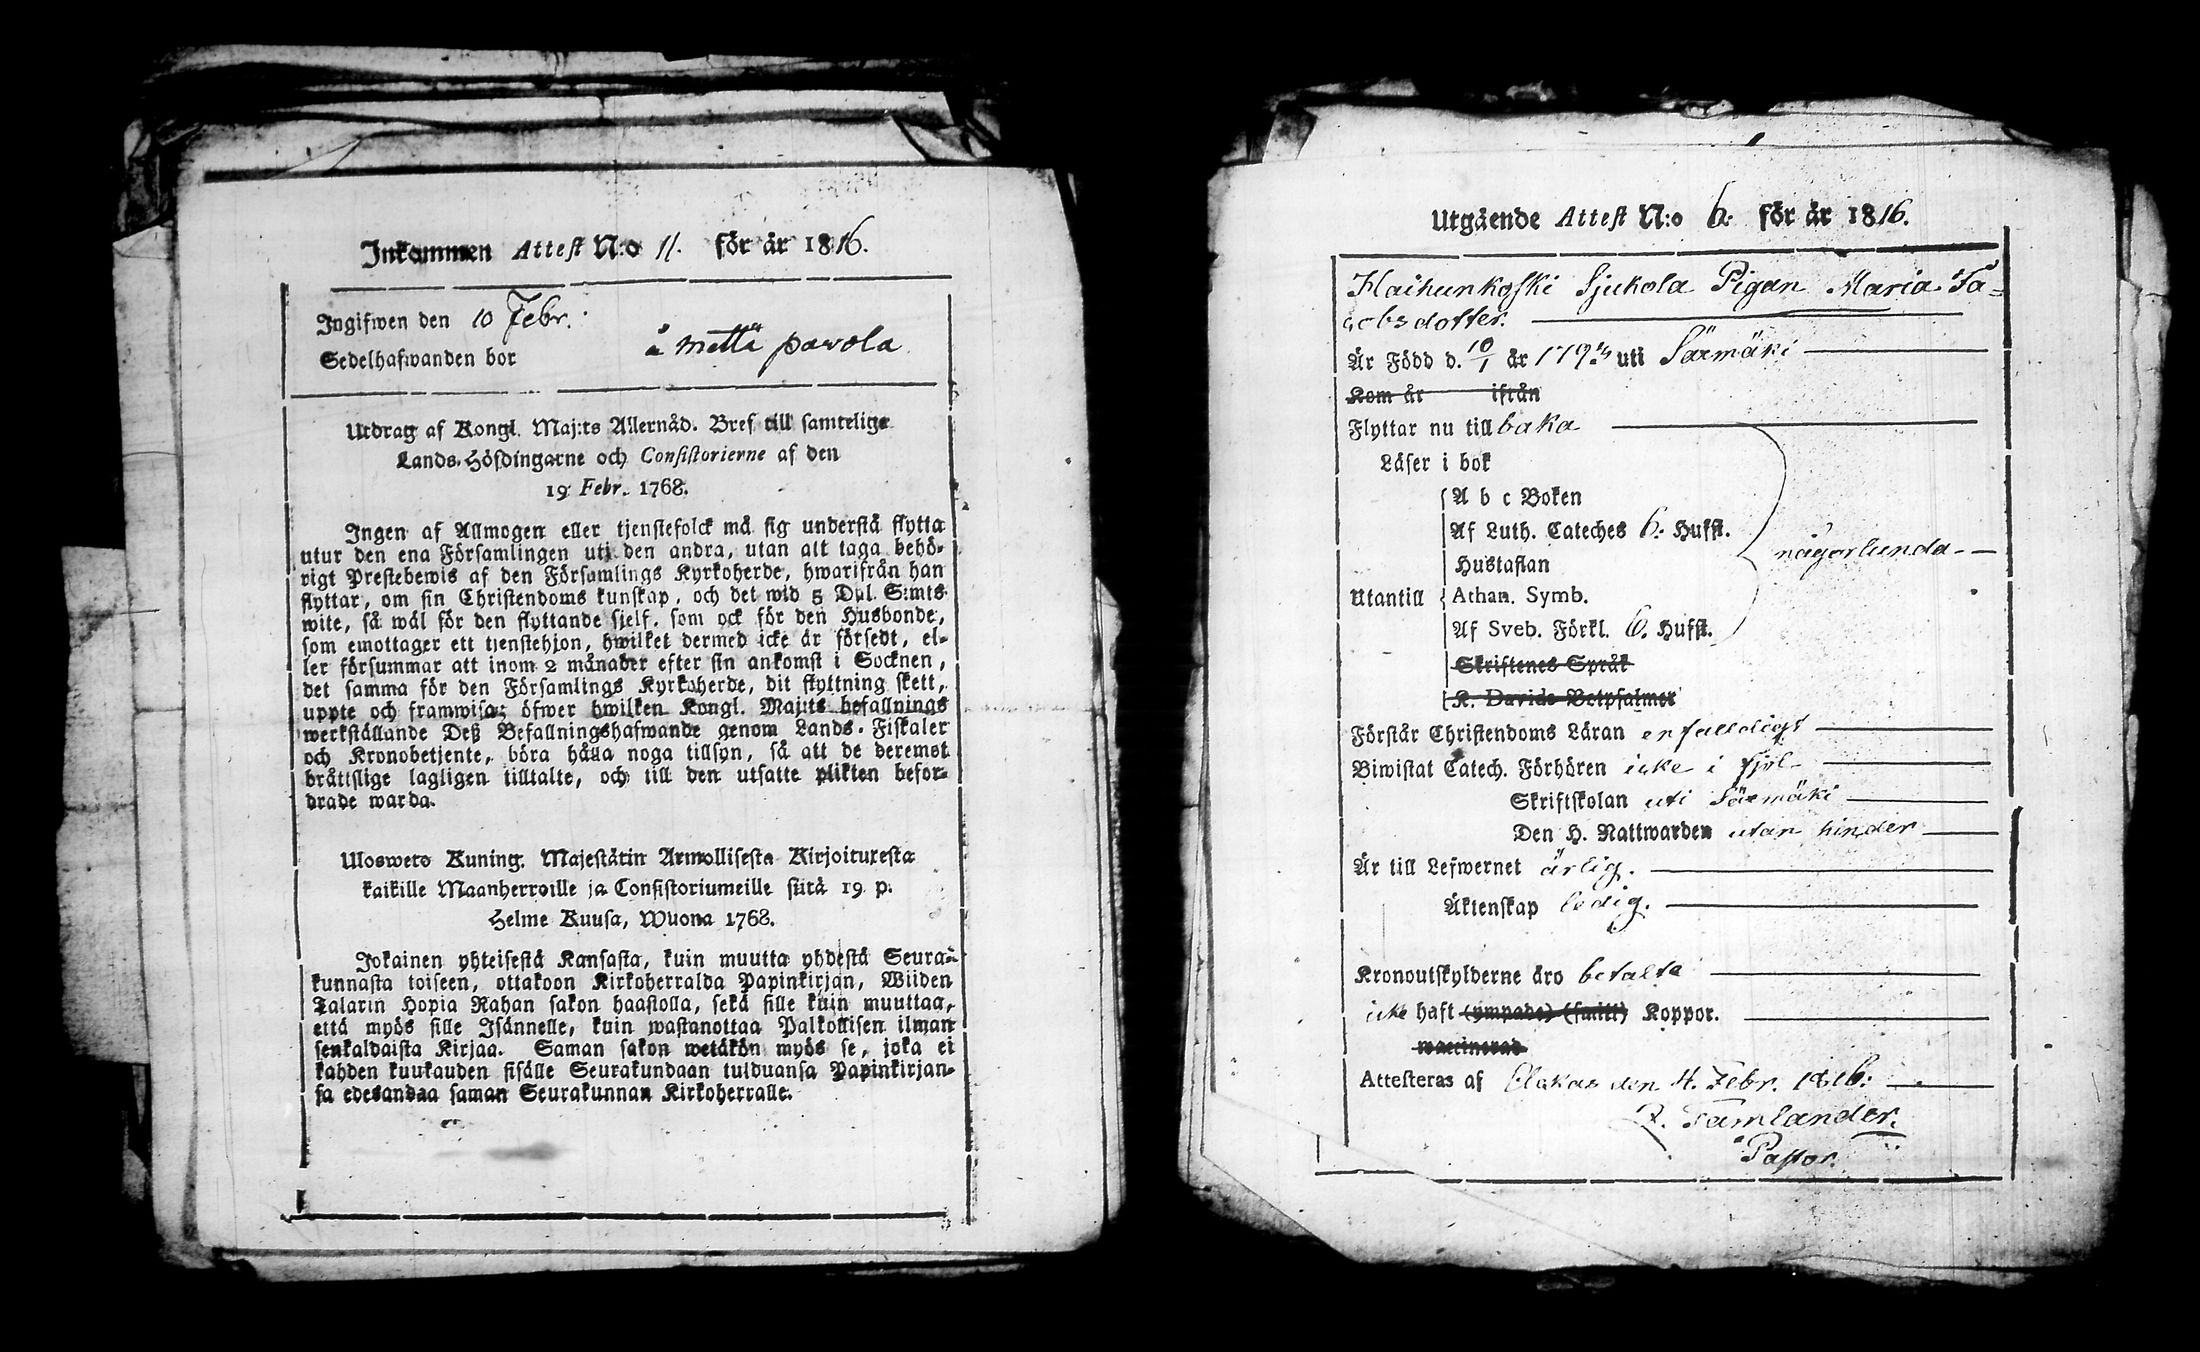 Inkommen Attest N:o 11. för år 1816.
Ingifwen den 10 Febr.
Sedelhafwanden bor å Mettä pavola
Utdrag af Kongl. Maj:ts Allernåd. Bref till samtelige
Lands-Höfdingarne och Consistorierne af den
19 Febr. 1768.
Ingen af Allmogen eller tjenstefolck må sig understå flytta
utur den ena Församlingen uti den andra, utan att taga behö-
rigt Prestebewis af den Församlings Kyrkoherde, hwarifrån han
flyttar, om sin Christendoms kunskap, och det wid 5 Dal. S:mts
wite, så wäl för den flyttande sjelf, som ock för den Husbonde,
som emottager ett tjenstehjon, hwilket dermed icke är försedt, el-
ler försummar att inom 2 månader efter sin ankomst i Socknen,
det samma för den Församlings Kyrkoherde, dit flyttning skett,
uppte och framwisa; öfwer hwilken Kongl. Maj:ts befallnings
werkställande Deß Befallningshafwande genom Lands-Fiskaler
och Kronobetjente, böra hålla noga tillsyn, så att de deremot
bråttslige lagligen tilltalte, och till den utsatte plikten befor-
drade warda.
Ulosweto Kuning. Majestätin Armollisesta Kirjoituxesta
kaikille Maanherroille ja Consistoriumeille siitä 19 p.
Helme Kuusa, Wuona 1768.
Jokainen yhteisestä Kansasta, kuin muutta yhdestä Seura-
kunnasta toiseen, ottakoon Kirkoherralda Papinkirjan, Wiiden
Talarin Hopia Rahan sakon haastolla, sekä sille kuin muuttaa,
että myös sille Isännelle, kuin wastanottaa Palkollisen ilman
senkaldaista Kirjaa. Saman sakon wetäkön myös se, joka ei
kahden kuukauden sisälle Seurakundaan tulduansa Papinkirjan-
sa edesandaa saman Seurakunnan Kirkoherralle.
Utgående Attest N:o 6. för år 1816.
Haihunkoski Sjukola Pigan Maria Ja=
cobsdotter.
Är Född d. 10/1 år 179 uti Särmäki
Kom år ifrån
Flyttar nu tillbaka
Läser i bok
A b c Boken
Af Luth. Cateches 6. Hufst.
Hustaflan
någorlunda
Utantill Athan. Symb.
Af Sveb. Förkl. 6. Hufst.
Skriftenes Språk
K. Davids Botpsalmer
Förstår Christendoms Läran enfaldigt
Biwistat Catech. Förhören icke i fjol
Skriftskolan uti Särmäki
Den H. Nattwarden utan hinder
Är till Lefwernet ärlig.
Äktenskap ledig.
Kronoutskylderne äro betalta
icke haft (ympade) (smitt) Koppor.
waccinerad
Attesteras af den 4. Febr. 1816.
Tamlander.
Pastor.